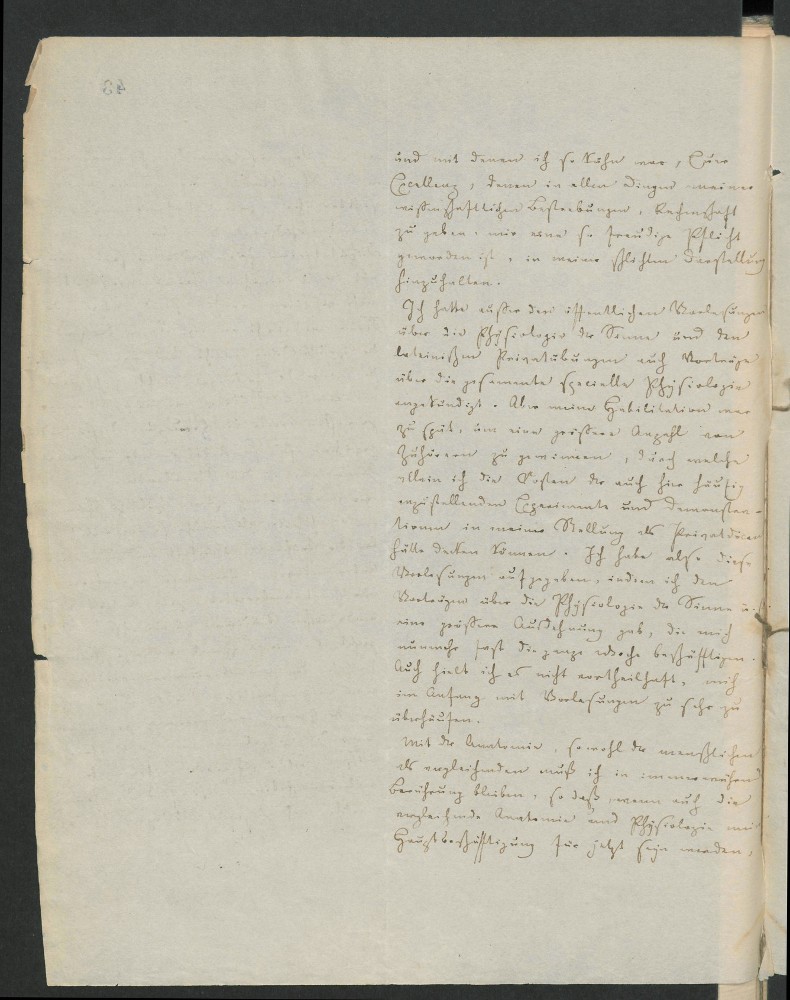 und mit denen ich so kühn war, Euer
Excellenz, denen in allen Dingen meiner
wissenschaftlichen Bestrebungen, Rechenschaft
zu geben, mir eine so freudige Pflicht
geworden ist, in meiner schlichten Darstellung
hinzuhalten.
Ich hatte außer den öffentlichen Vorlesungen
über die Physiologie der Sinne und den
lateinischen Privatübungen auch Vorträge
über die gesammte specielle Physiologie
angekündigt. Aber meine Habilitation war
zu spät, um eine größere Anzahl von
Zuhörern zu gewinnen, durch welche
allein ich die Kosten der auch hier häufig
anzustellenden Experimente und Demonstra-
tionen in meiner Stellung als Privatdocent
hätte decken können. Ich habe also diese
Vorlesungen aufgegeben, indem ich den
Vorträgen über die Physiologie der Sinne
eine größere Ausdehnung gab, die mich
nunmehr fast die ganze Woche beschäftigen.
Auch hielt ich es nicht vortheilhaft, mich
im Anfang mit Vorlesungen zu sehr zu
überhäufen.
Mit der Anatomie, sowohl der menschlichen
als vergleichenden muß ich in immerwährend
Berührung bleiben, so daß, wenn auch die
vergleichende Anatomie und Physiologie
Hauptbeschäftigung für jetzt sein werden,